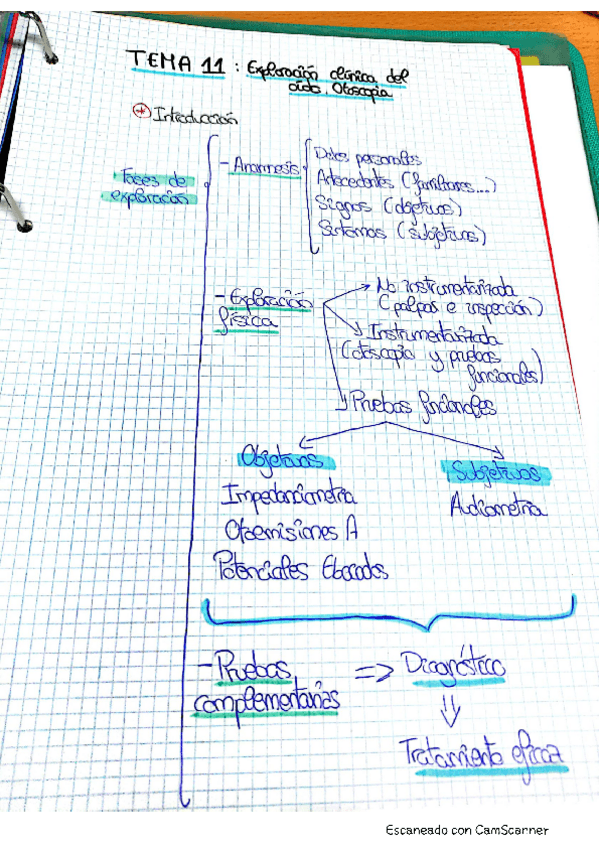 TEMA 11 : Exploración clínica del
oído. Otoscopia
Introducción
Fases de
exploración
- Anamnesis
Datos personales
Antecedentes (familiares...)
Signos (objetivos)
Síntomas (subjetivos)
- Exploración
física
No instrumentarizada
(palpas e inspección)
Instrumentarizada
(otoscopia y pruebas
funcionales)
Pruebas funcionales
Objetivas
Impedanciometría
Otoemisiones A
Potenciales Evocados
Subjetivas
Audiometría
- Pruebas
complementarias
=> Diagnóstico
Tratamiento eficaz
Escaneado con CamScanner